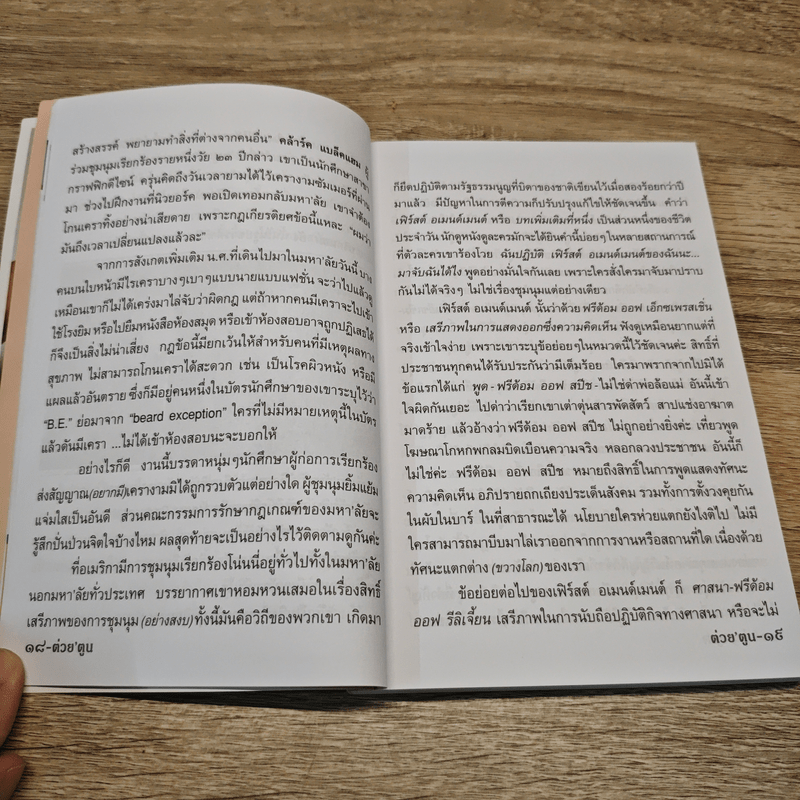 สร้างสรรค์ พยายามทำสิ่งที่ต่างจากคนอื่น" คล้าร์ค แบล็คแฮม ผู้
ร่วมชุมนุมเรียกร้องรายหนึ่งวัย ๒๓ ปีกล่าว เขาเป็นนักศึกษาสาขา
กราฟฟิกดีไซน์ ครุ่นคิดถึงวันเวลายามได้ไว้เครางามซัมเมอร์ที่ผ่าน
มา ช่วงไปฝึกงานที่นิวยอร์ค พอเปิดเทอมกลับมหา'ลัย เขาจำต้อง
โกนเคราทิ้งอย่างน่าเสียดาย เพราะกฎเกียรติยศข้อนี้แหละ "ผมว่า
มันถึงเวลาเปลี่ยนแปลงแล้วละ"
จากการสังเกตเพิ่มเติม น.ศ.ที่เดินไปมาในมหา'ลัยวันนี้ บาง
คนบนใบหน้ามีไรเคราบางๆเบาๆแบบนายแบบแฟชั่น จะว่าไปแล้วดู
เหมือนเขาก็ไม่ได้เคร่งมาไล่จับว่าผิดกฎ แต่ถ้าหากคนมีเคราจะไปเข้า
ใช้โรงยิม หรือไปยืมหนังสือห้องสมุด หรือเข้าห้องสอบอาจถูกปฏิเสธได้
ก็จึงเป็นสิ่งไม่น่าเสี่ยง กฎข้อนี้มียกเว้นให้สำหรับคนที่มีเหตุผลทาง
สุขภาพ ไม่สามารถโกนเคราได้สะดวก เช่น เป็นโรคผิวหนัง หรือมี
แผลแล้วอันตราย ซึ่งก็มีอยู่คนหนึ่งในบัตรนักศึกษาของเขาระบุไว้ว่า
"B.E." ย่อมาจาก "beard exception" ใครที่ไม่มีหมายเหตุนี้ในบัตร
แล้วดันมีเครา ...ไม่ได้เข้าห้องสอบนะจะบอกให้
อย่างไรก็ดี งานนี้บรรดาหนุ่มๆนักศึกษาผู้ก่อการเรียกร้อง
ส่งสัญญาณ(อยากมี)เครางามมิได้ถูกรวบตัวแต่อย่างใด ผู้ชุมนุมยิ้มแย้ม
แจ่มใสเป็นอันดี ส่วนคณะกรรมการรักษากฎเกณฑ์ของมหา'ลัยจะ
รู้สึกปั่นป่วนจิตใจบ้างไหม ผลสุดท้ายจะเป็นอย่างไรไว้ติดตามดูกันค่ะ
ที่อเมริกามีการชุมนุมเรียกร้องโน่นนี่อยู่ทั่วไปทั้งในมหา'ลัย
นอกมหา'ลัยทั่วประเทศ บรรยากาศเขาหอมหวนเสมอในเรื่องสิทธิ์
เสรีภาพของการชุมนุม (อย่างสงบ) ทั้งนี้มันคือวิถีของพวกเขา เกิดมา
๑๘-ต่วย'ตูน
ก็ยึดปฏิบัติตามรัฐธรรมนูญที่บิดาของชาติเขียนไว้เมื่อสองร้อยกว่าปี
มาแล้ว มีปัญหาในการตีความก็ปรับปรุงแก้ไขให้ชัดเจนขึ้น คำว่า
เฟิร์สต์ อเมนด์เมนต์ หรือ บทเพิ่มเติมที่หนึ่ง เป็นส่วนหนึ่งของชีวิต
ประจำวัน นักดูหนังดูละครมักจะได้ยินคำนี้บ่อยๆในหลายสถานการณ์
ที่ตัวละครเขาร้องโวย ฉันปฏิบัติ เฟิร์สต์ อเมนด์เมนต์ของฉันนะ...
มาจับฉันได้ไง พูดอย่างมั่นใจกันเลย เพราะใครสั่งใครมาจับมาปราบ
กันไม่ได้จริงๆ ไม่ใช่เรื่องชุมนุมแต่อย่างเดียว
เฟิร์สต์ อเมนด์เมนต์ นั้นว่าด้วย ฟรีด้อม ออฟ เอ็กซเพรสเชิ่น
หรือ เสรีภาพในการแสดงออกซึ่งความคิดเห็น ฟังดูเหมือนยากแต่ที่
จริงเข้าใจง่าย เพราะเขาระบุข้อย่อยๆในหมวดนี้ไว้ชัดเจนค่ะ สิทธิ์ที่
ประชาชนทุกคนได้รับประกันว่ามีเต็มร้อย ใครมาพรากจากไปมิได้
ข้อแรกได้แก่ พูด-ฟรีด้อม ออฟ สปีช-ไม่ใช่ด่าพ่อล้อแม่ อันนี้เข้า
ใจผิดกันเยอะ ไปด่าว่าเรียกเขาเต่าตุ่นสารพัดสัตว์ สาปแช่งอาฆาต
มาดร้าย แล้วอ้างว่าฟรีด้อม ออฟ สปีช ไม่ถูกอย่างยิ่งค่ะ เที่ยวพูด
โฆษณาโกหกพกลมบิดเบือนความจริง หลอกลวงประชาชน อันนี้ก็
ไม่ใช่ค่ะ ฟรีด้อม ออฟ สปีช หมายถึงสิทธิ์ในการพูดแสดงทัศนะ
ความคิดเห็น อภิปรายถกเถียงประเด็นสังคม รวมทั้งการตั้งวงคุยกัน
ในผับในบาร์ ในที่สาธารณะได้ นโยบายใครห่วยแตกยังไงติไป ไม่มี
ใครสามารถมาบีบมาไล่เราออกจากการงานหรือสถานที่ใด เนื่องด้วย
ทัศนะแตกต่าง (ขวางโลก) ของเรา
ข้อย่อยต่อไปของเฟิร์สต์ อเมนด์เมนต์ ก็ ศาสนา-ฟรีด้อม
ออฟ รีลิเจี้ยน เสรีภาพในการนับถือปฏิบัติกิจทางศาสนา หรือจะไม่
ต่วย'ตูน-๑๙